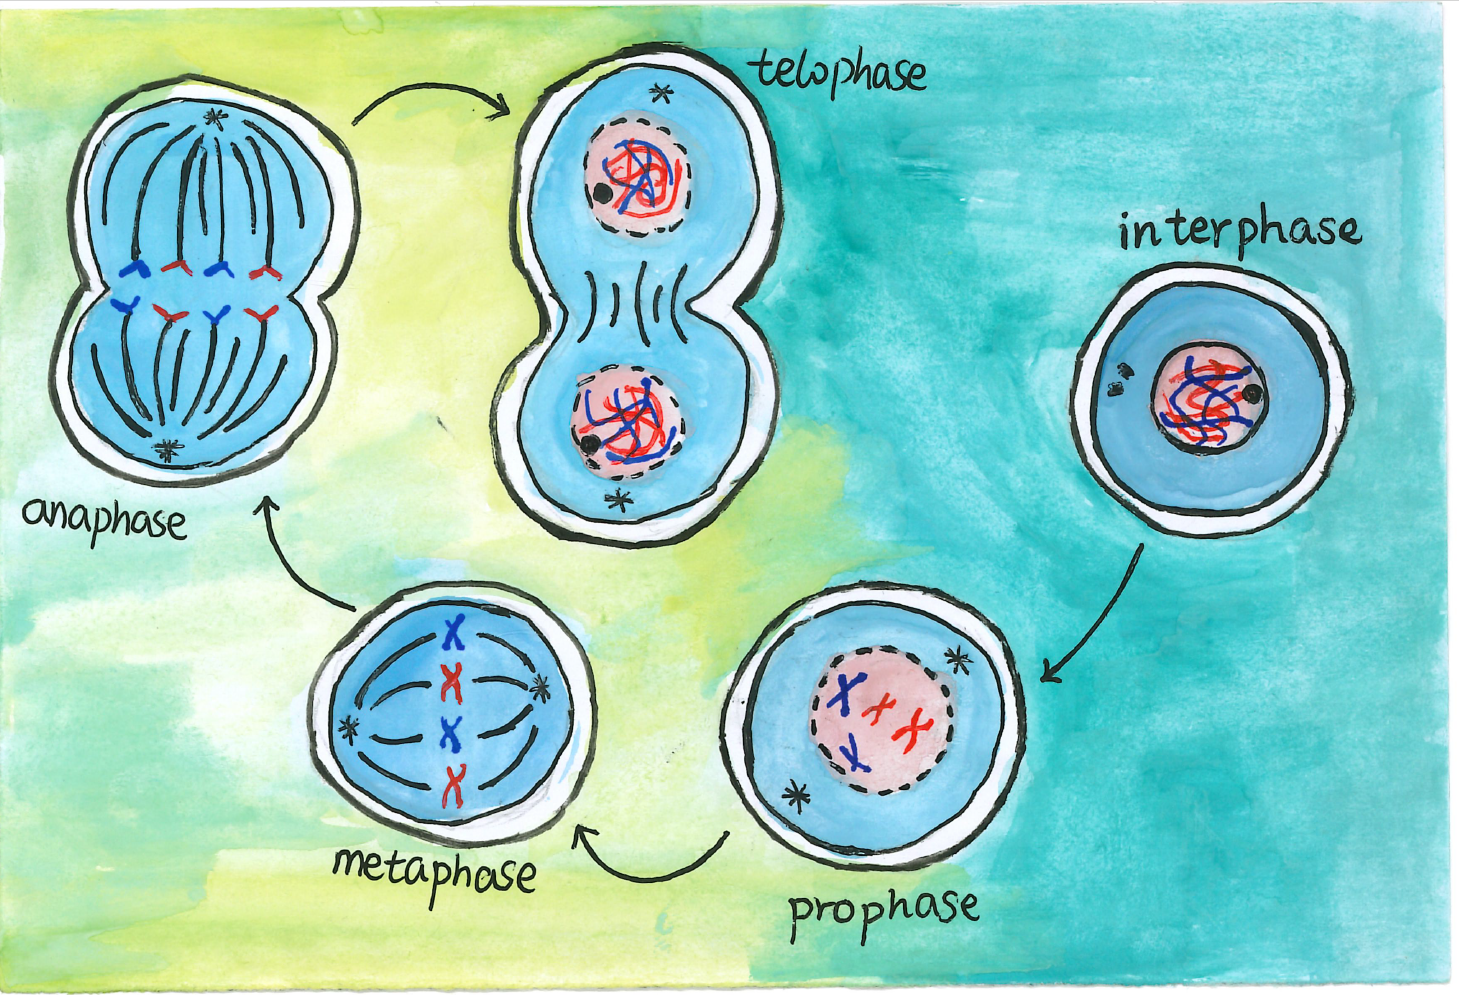 telophase
interphase
anaphase
metaphase
prophase